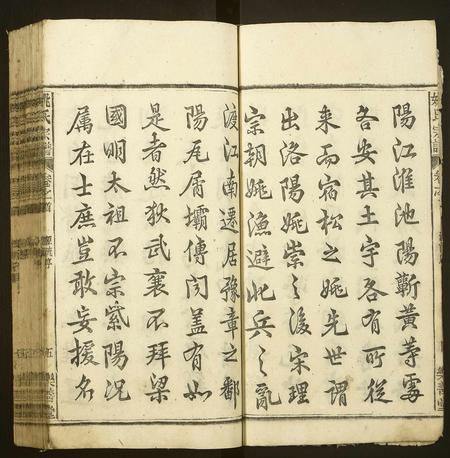 陽江淮池陽蘄黃等處
各安其土宇各有所從
来而宿松之姚先世謂
出洛陽姚崇之後宋理
宗朝姚漁避北兵之亂
渡江南遷居豫章之鄱
陽瓦屑壩傳聞蓋有如
是者然狄武襄不拜梁
國明太祖不宗紫陽况
属在士庶豈敢妄援名
姚氏宗譜
卷之首
五
姚氏宗譜
卷之首